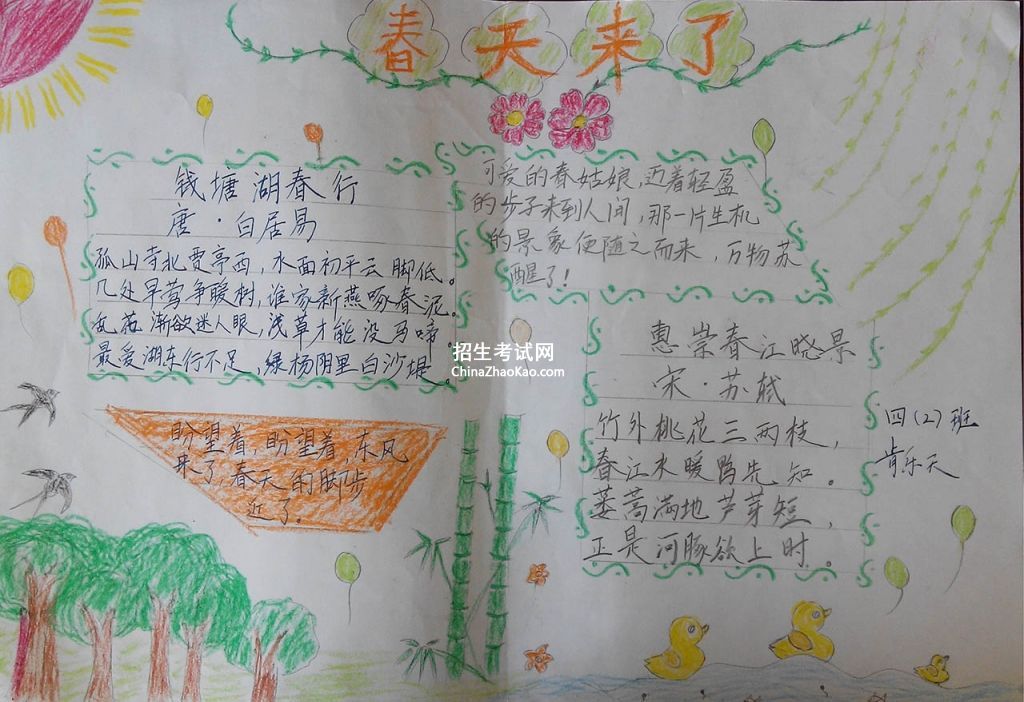 春天来了
钱塘湖春行
唐·白居易
孤山寺北贾亭西，水面初平云脚低。
几处早莺争暖树，谁家新燕啄春泥。
乱花渐欲迷人眼，浅草才能没马啼。
最爱湖东行不足，绿杨阴里白沙堤。
可爱的春姑娘，迈着轻盈
的步子来到人间，那一片生机
的景象便随之而来，万物苏
醒了！
惠崇春江晓景
宋·苏轼
竹外桃花三两枝，
春江水暖鸭先知。
蒌蒿满地芦芽短，
正是河豚欲上时。
盼望着，盼望着，东风
来了，春天的脚步
近了。
四（2）班
肯乐天
招生考试网
ChinaZhaoKao.com